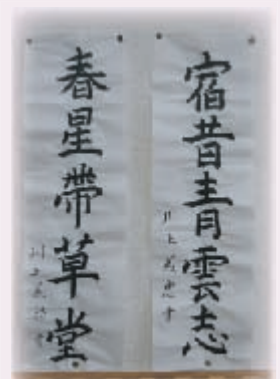 宿昔青雲志
井上
春星帶草堂